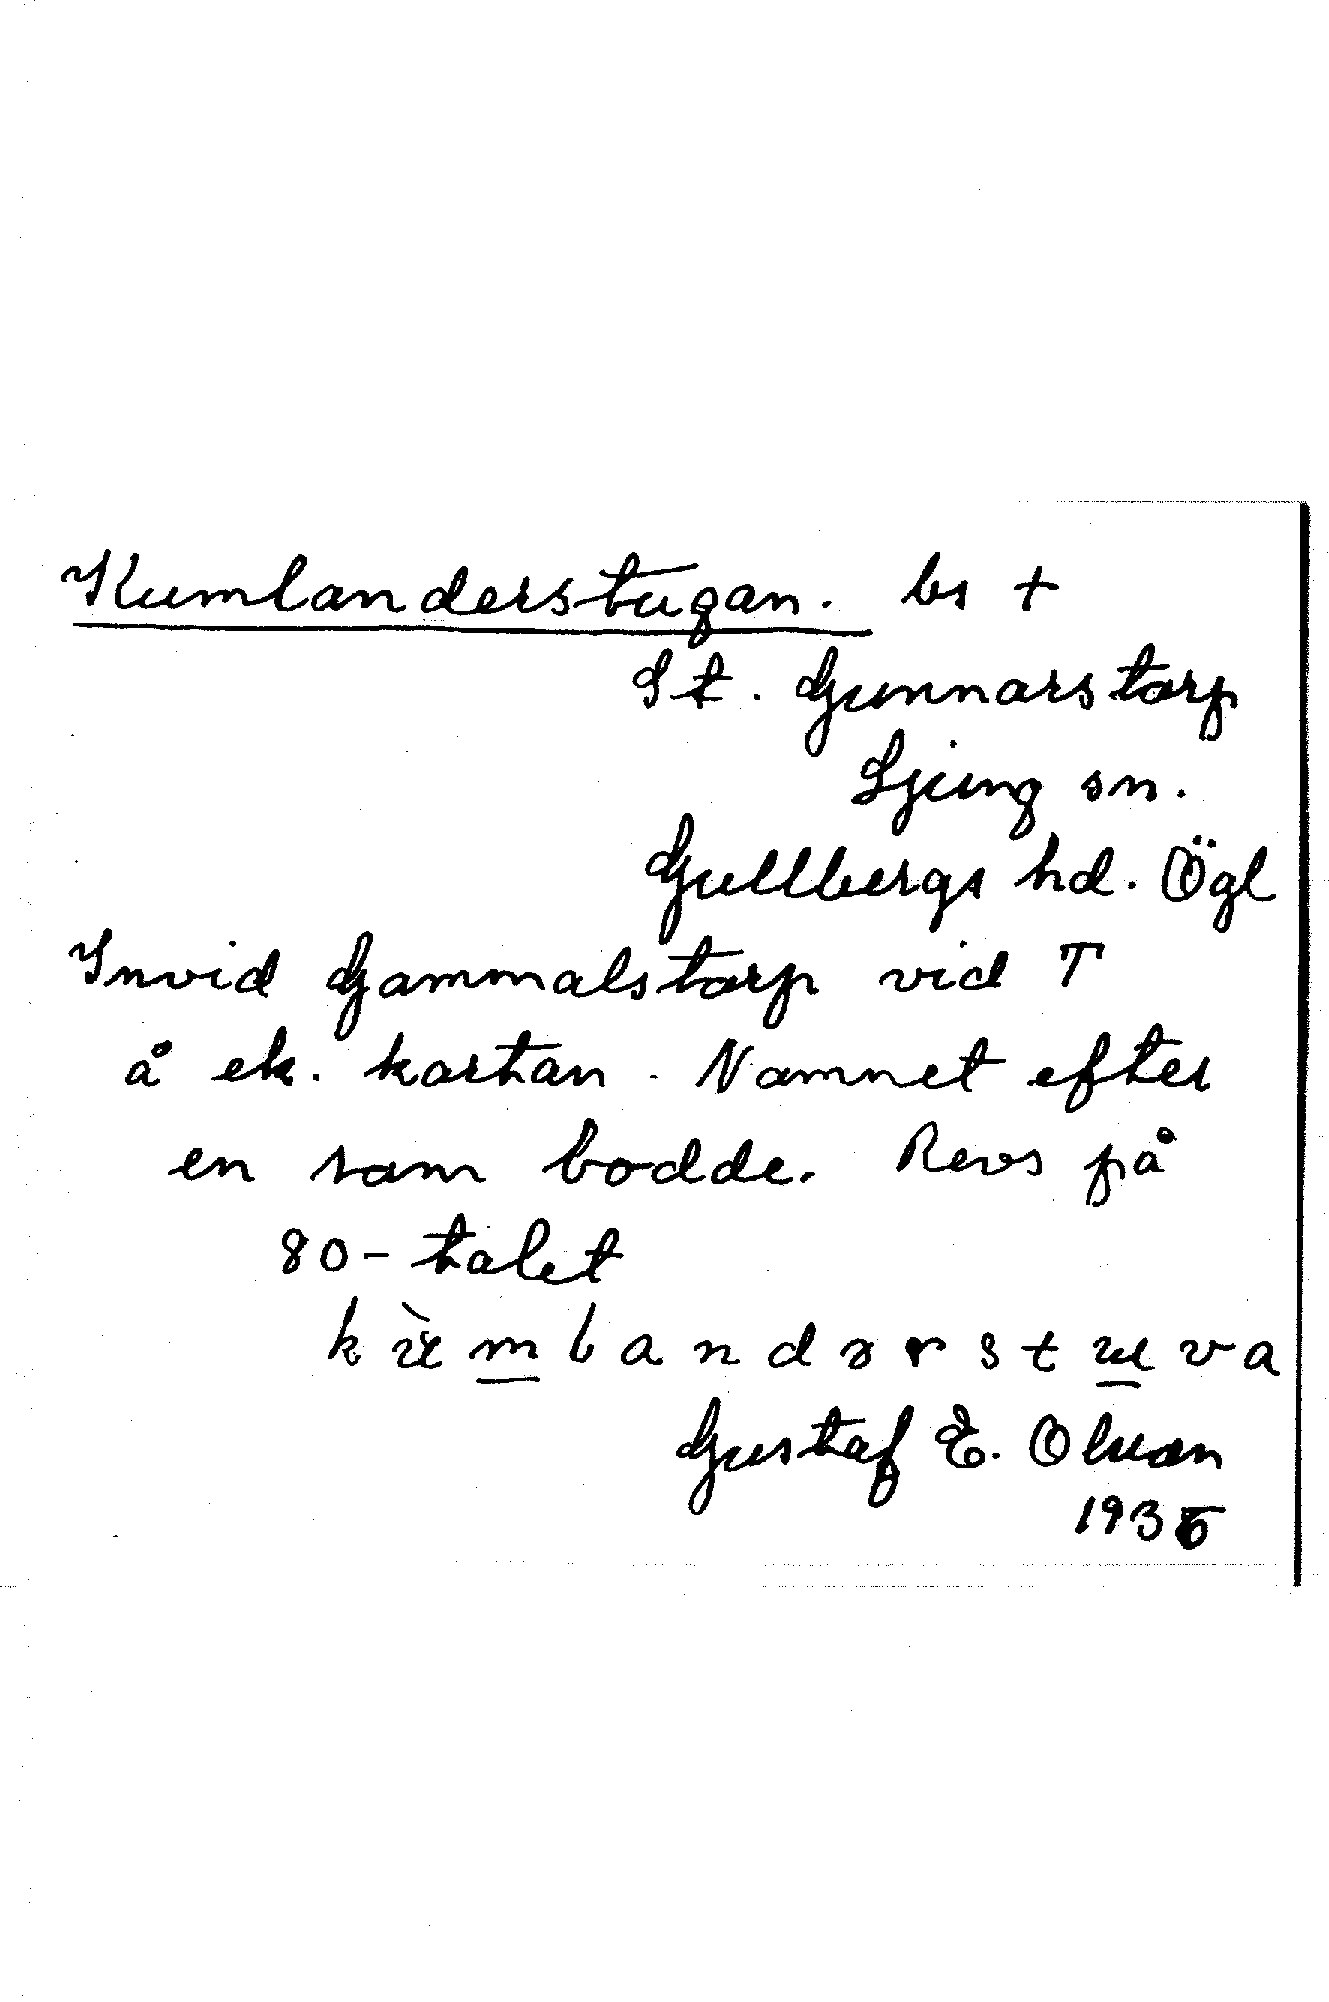 Kumlanderstugan. bs +
St. Gunnarstorp
Ljung sn.
Gullbergs hd. Ögl
Invid Gammalstorp vid T
å ek. kartan. Namnet efter
en som bodde. Revs på
80-talet
kùmlandərstuva
Gustaf E. Olsson
1935